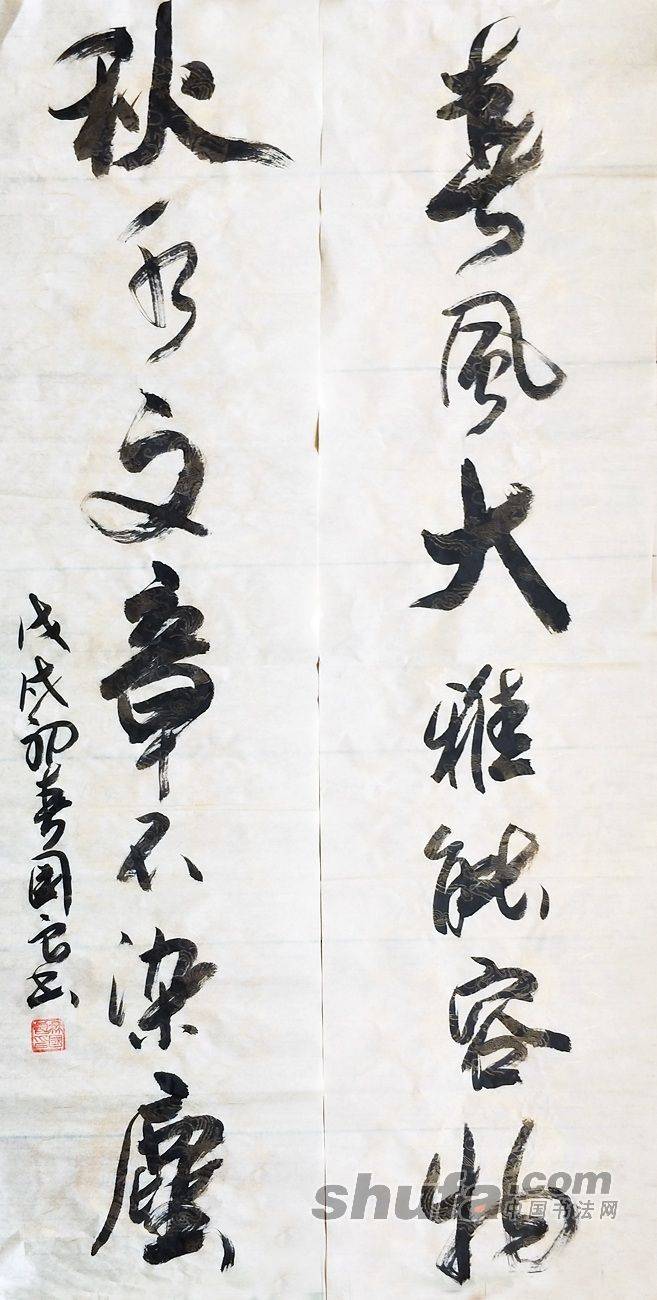 春風大雅能容物
秋水文章不染塵
戊戌初春國良书
shufa.com
中国书法网